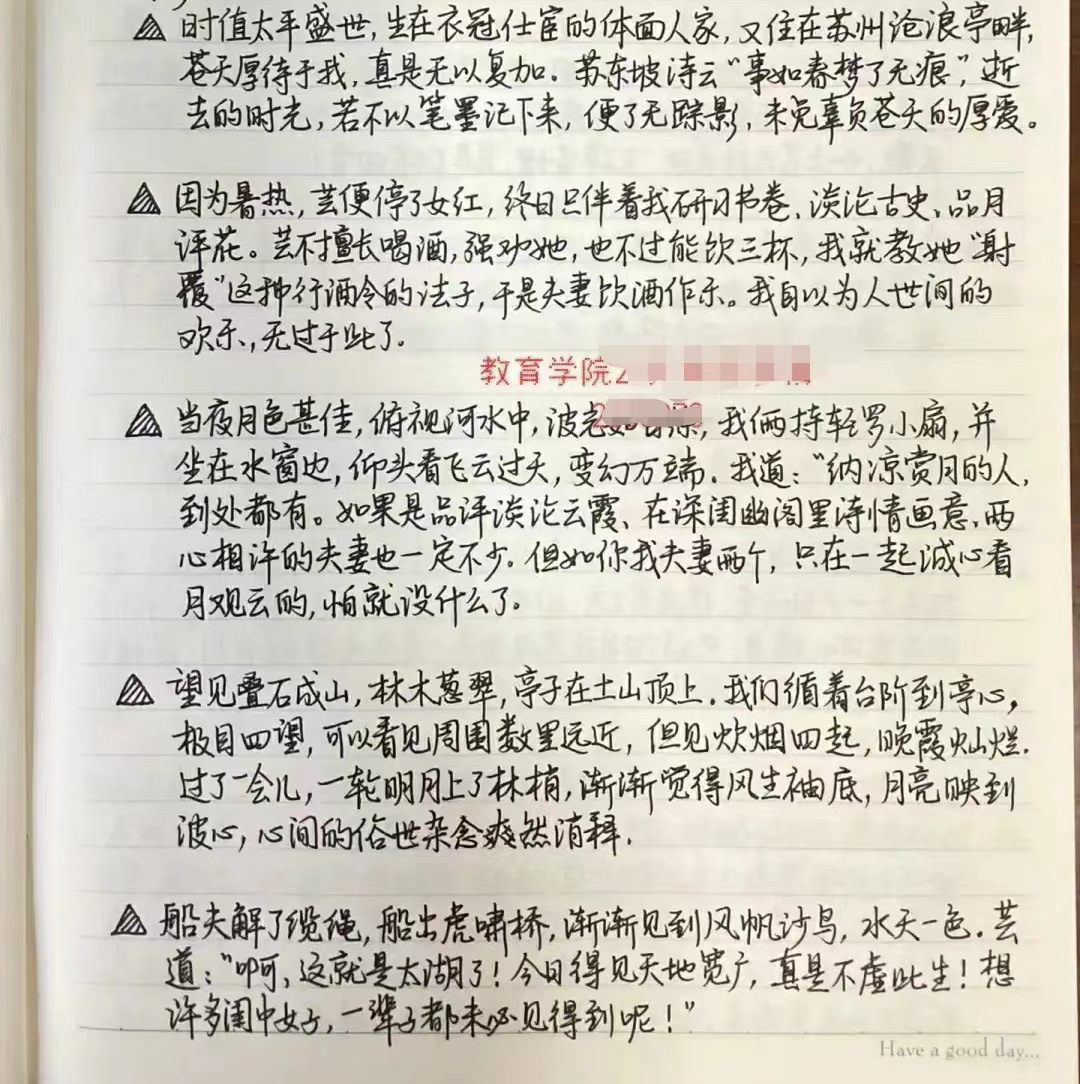 时值太平盛世，生在衣冠仕宦的体面人家，又住在苏州沧浪亭畔，
苍天厚待于我，真是无以复加。苏东坡诗云“事如春梦了无痕”，逝
去的时光，若不以笔墨记下来，便了无踪影，未免辜负苍天的厚爱。
因为暑热，芸便停了女红，终日只伴着我研习书卷、谈论古史、品月
评花。芸不擅长喝酒，强劝她，也不过能饮三杯，我就教她“射
覆”这种行酒令的法子，于是夫妻饮酒作乐。我自以为人世间的
欢乐，无过于此了。
教育学院2
当夜月色甚佳，俯视河水中，波，我俩持轻罗小扇，并
坐在水窗边，仰头看飞云过天，变幻万端。我道：“纳凉赏月的人，
到处都有。如果是品评谈论云霞、在深闺幽阁里诗情画意、两
心相许的夫妻也一定不少。但如你我夫妻两个，只在一起诚心看
月观云的，怕就没什么了。
望见叠石成山，林木葱翠，亭子在土山顶上。我们循着台阶到亭心，
极目四望，可以看见周围数里远近，但见炊烟四起，晚霞灿烂。
过了一会儿，一轮明月上了林梢，渐渐觉得风生袖底，月亮映到
波心，心间的俗世杂念爽然消释.
船夫解了缆绳，船出虎啸桥，渐渐见到风帆沙鸟，水天一色。芸
道：“叩可，这就是太湖了！今日得见天地宽广，真是不虚此生！想
许多闺中女子，一辈子都未必见得到呢！”
Have a good day...